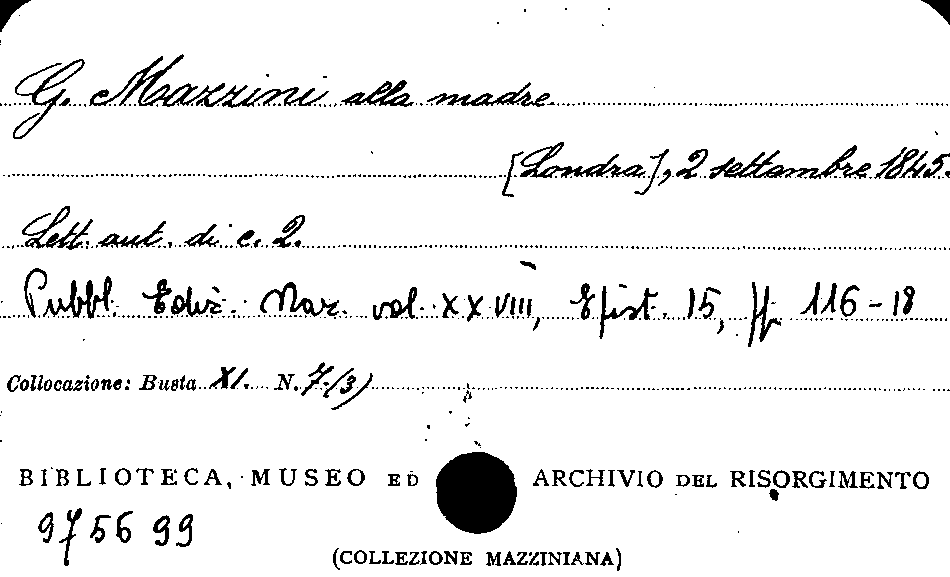 G. Mazzini alla madre
[Londra], 2 settembre 1845.
Lett. aut. di c. 2.
Pubbl. Ediz. Naz. vol. XXVIII, Epist. 15, pp. 116-18
Collocazione: Busta XI. N. 7.(3)
BIBLIOTECA, MUSEO ED ARCHIVIO DEL RISORGIMENTO
975699
(COLLEZIONE MAZZINIANA)